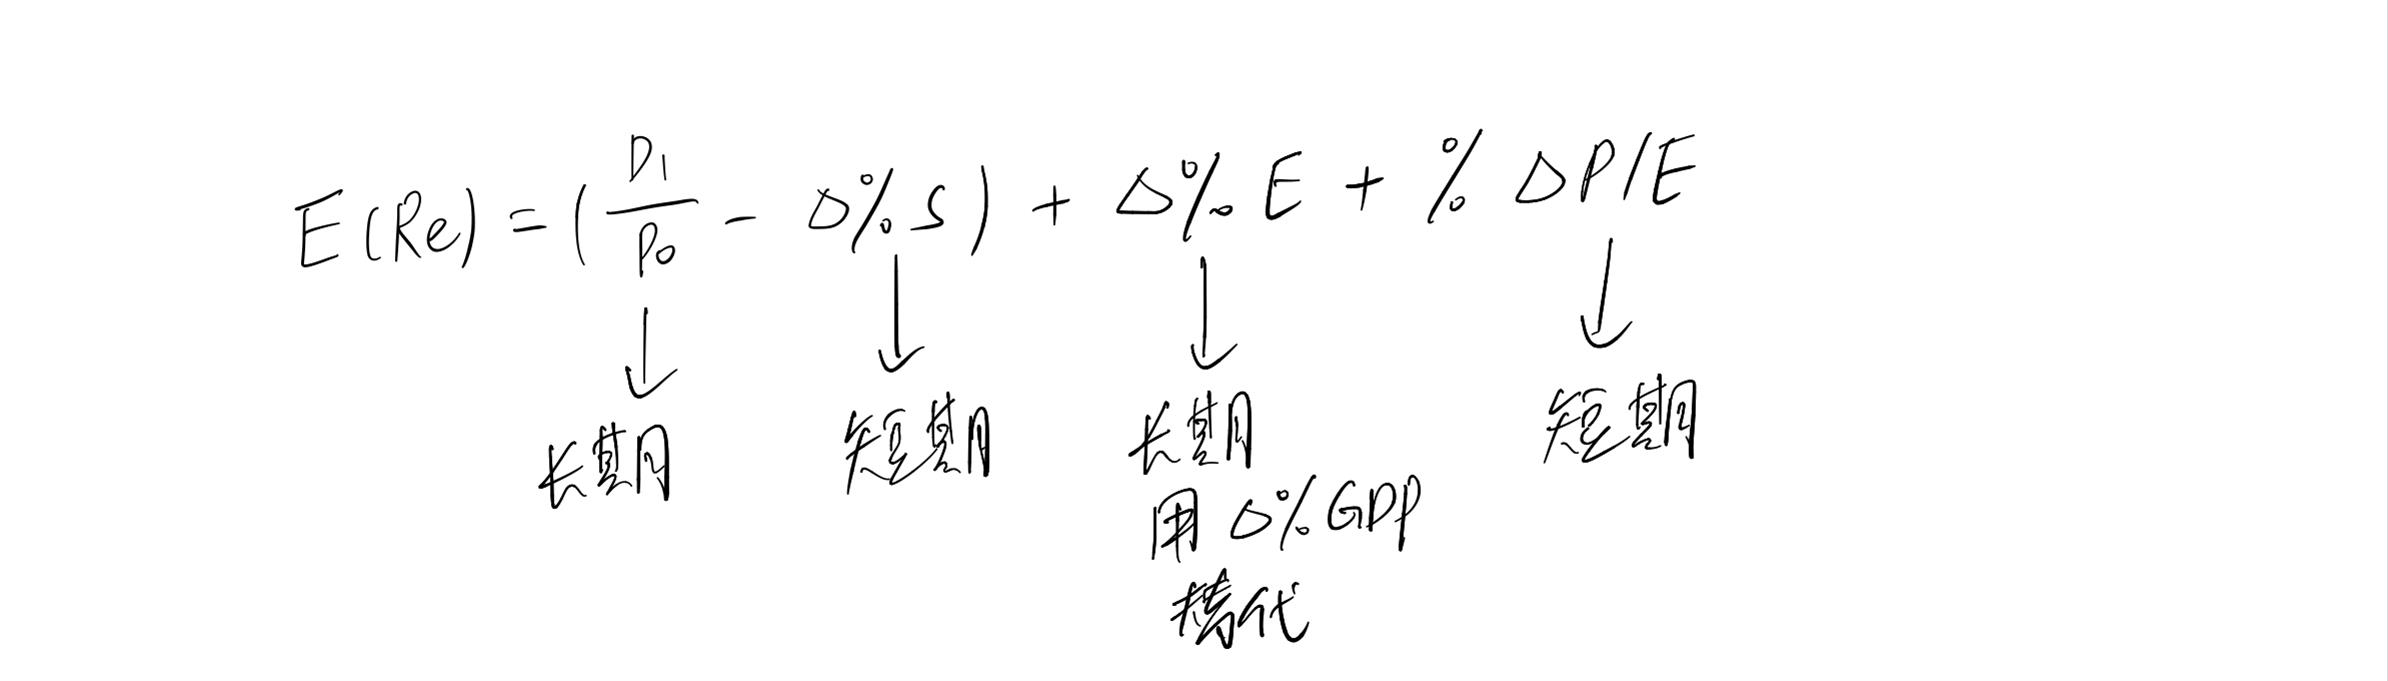 E(Re) = (D1/P0 - Δ%S) + Δ%E + %ΔP/E
长期 短期 长期 短期
用 Δ%GDP
替代